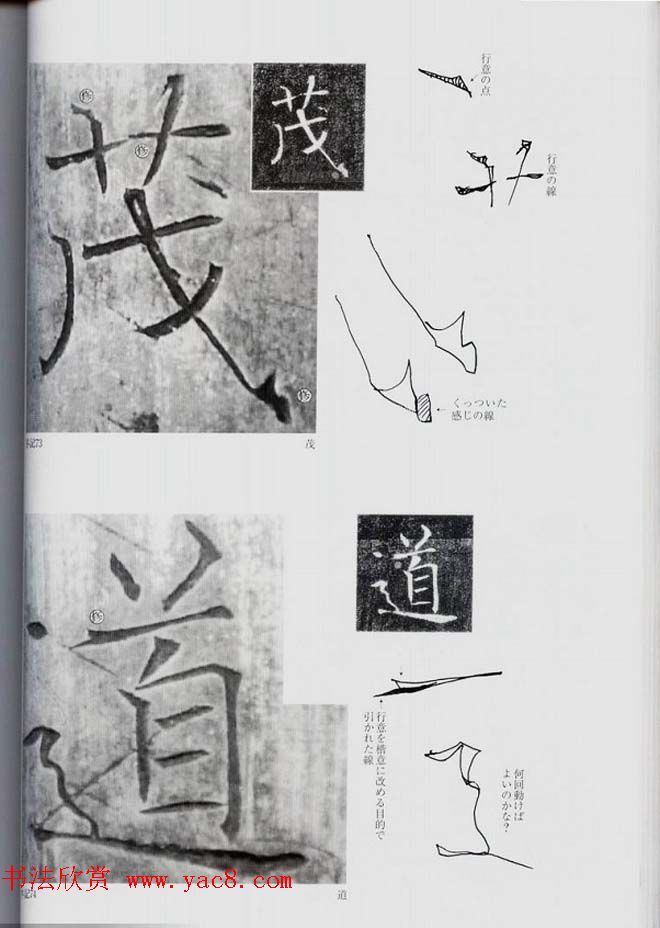 茂
茂
行意の点
行意の線
くっついた
感じの線
茂
道
道
行意を楷意に改める目的で
引かれた線
何回動けば
よいのかな？
书法欣赏 www.yac8.com
道